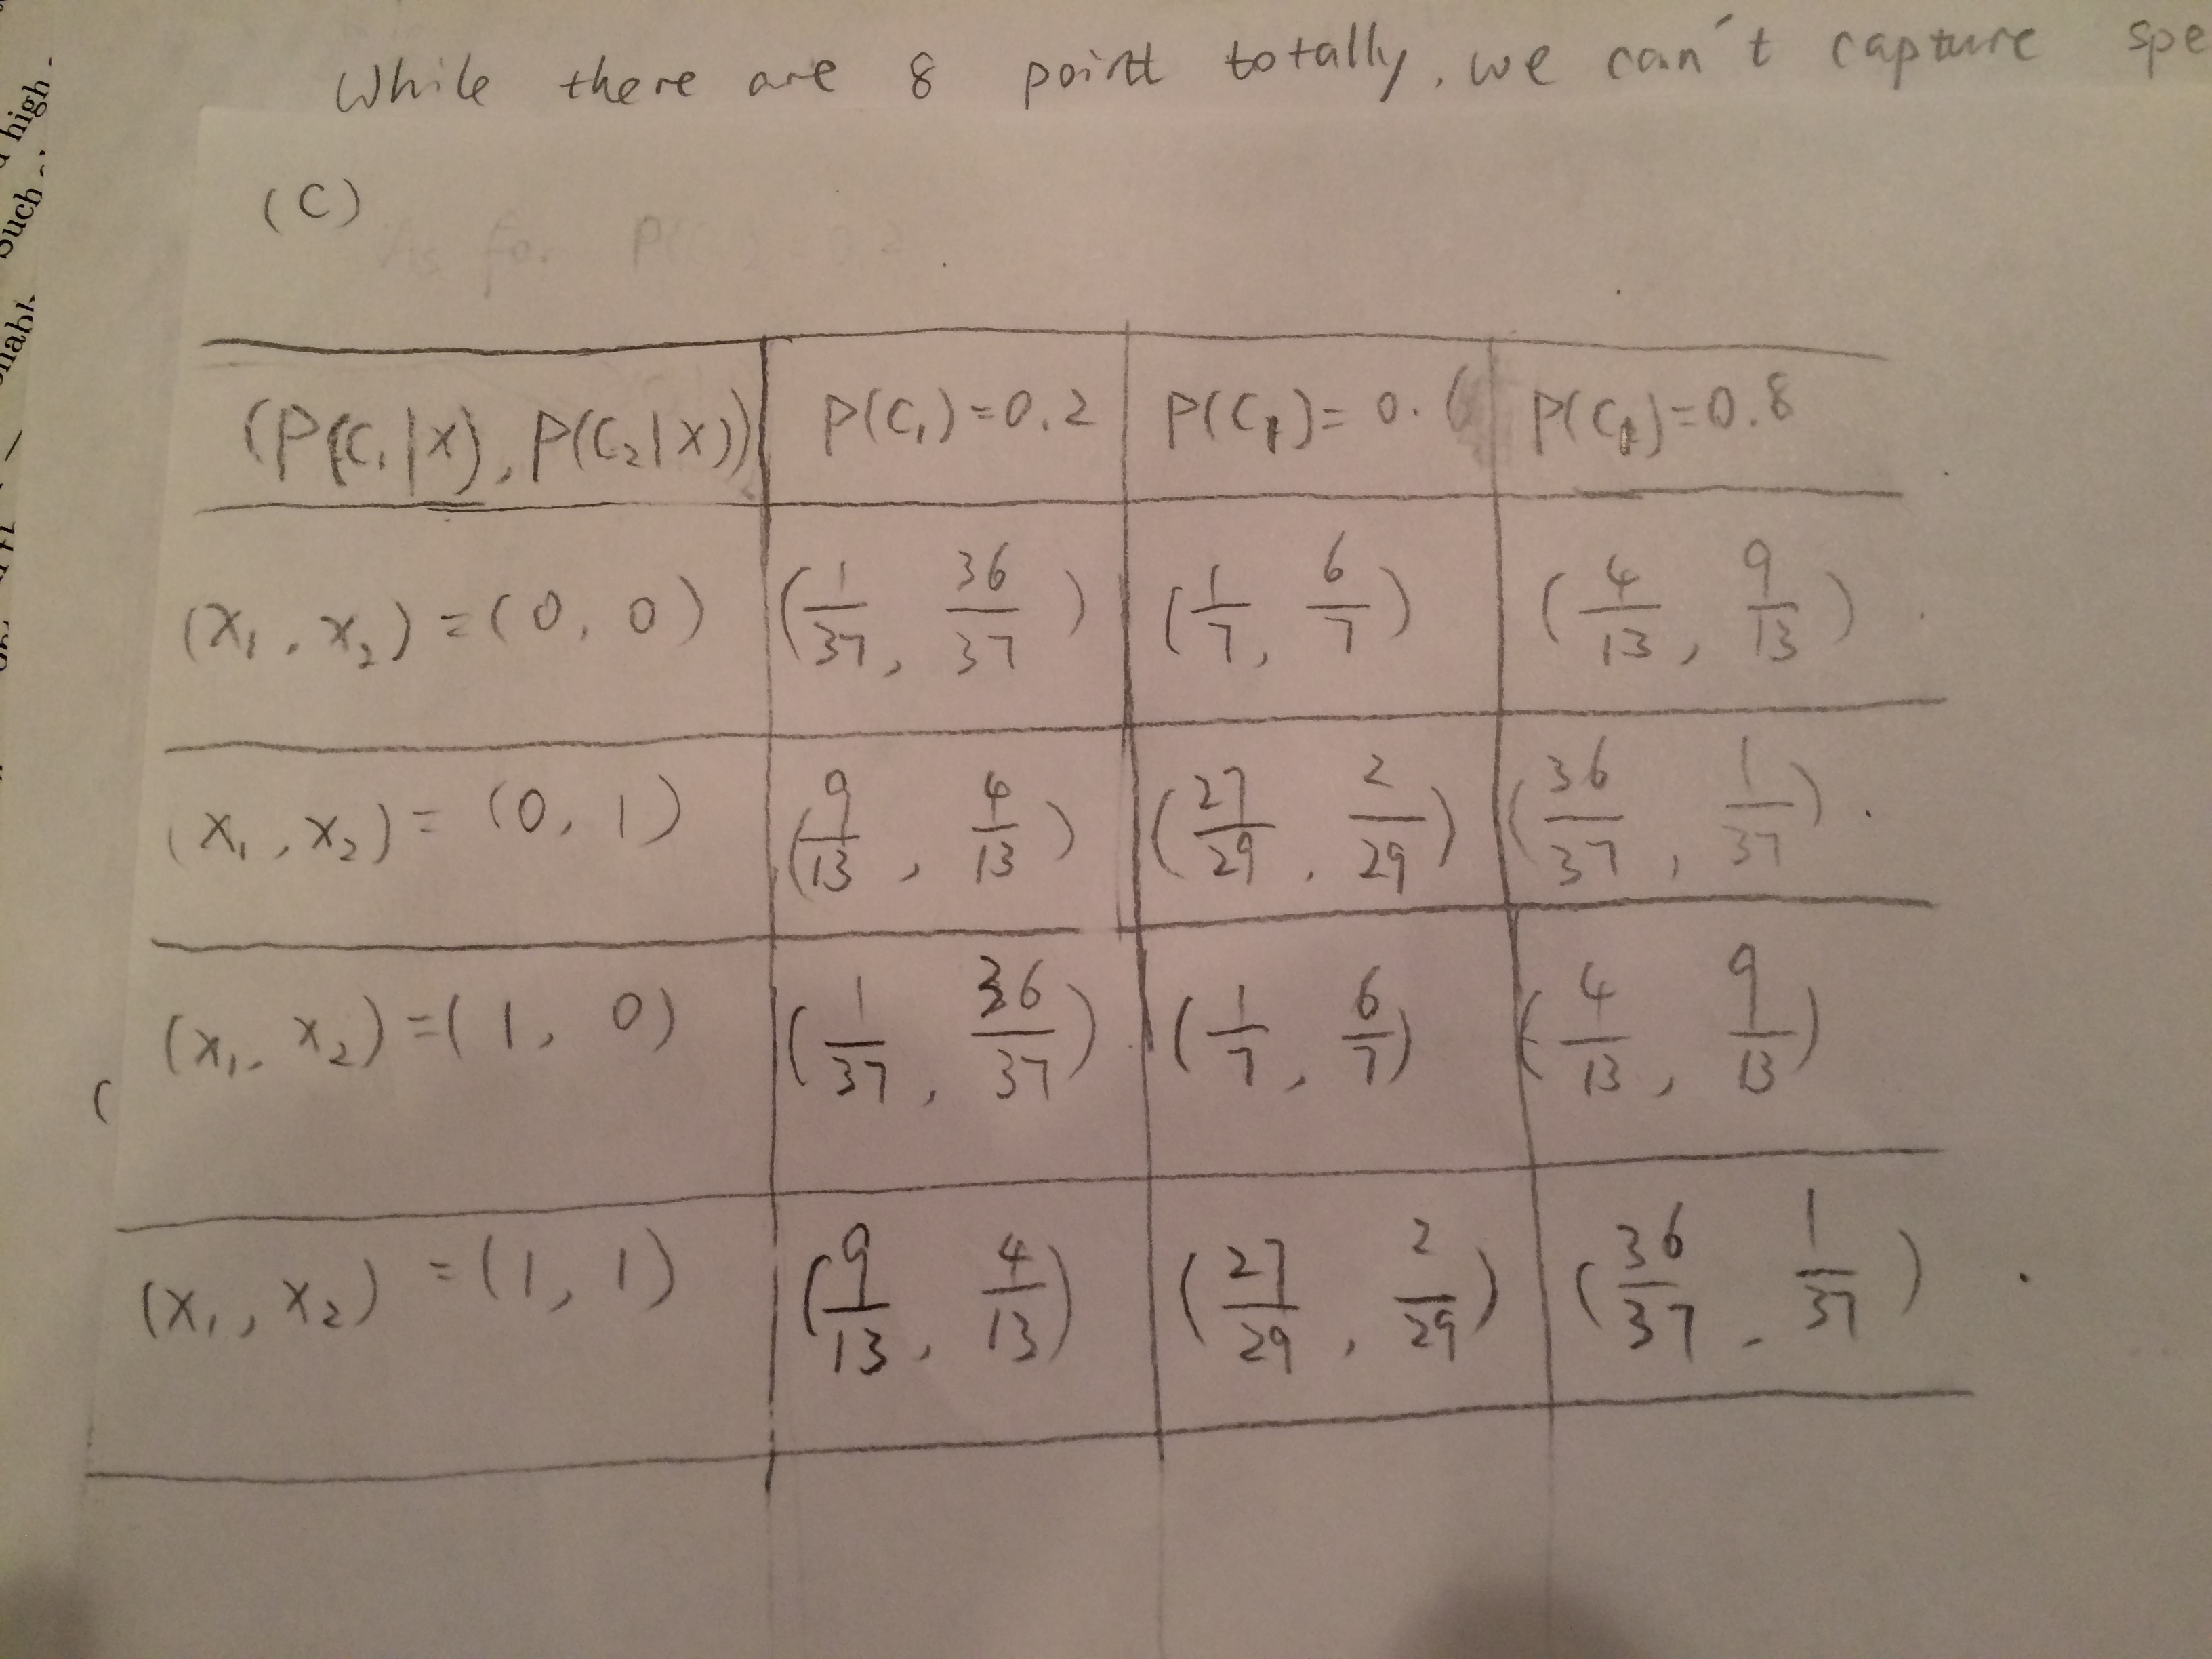 While there are 8 point totally, we can't capture spe
(C)
As for P(C
(P(C₁|X), P(C₂|X)) P(C₁)=0.2 P(C₁)=0.6 P(C₁)=0.8
(X₁, X₂)=(0, 0) (1/37, 36/37) (1/7, 6/7) (4/13, 9/13)
(X₁, X₂)=(0, 1) (9/13, 4/13) (27/29, 2/29) (36/37, 1/37)
(X₁, X₂)=(1, 0) (1/37, 36/37) (1/7, 6/7) (4/13, 9/13)
(X₁, X₂)=(1, 1) (9/13, 4/13) (27/29, 2/29) (36/37, 1/37)
high
Such